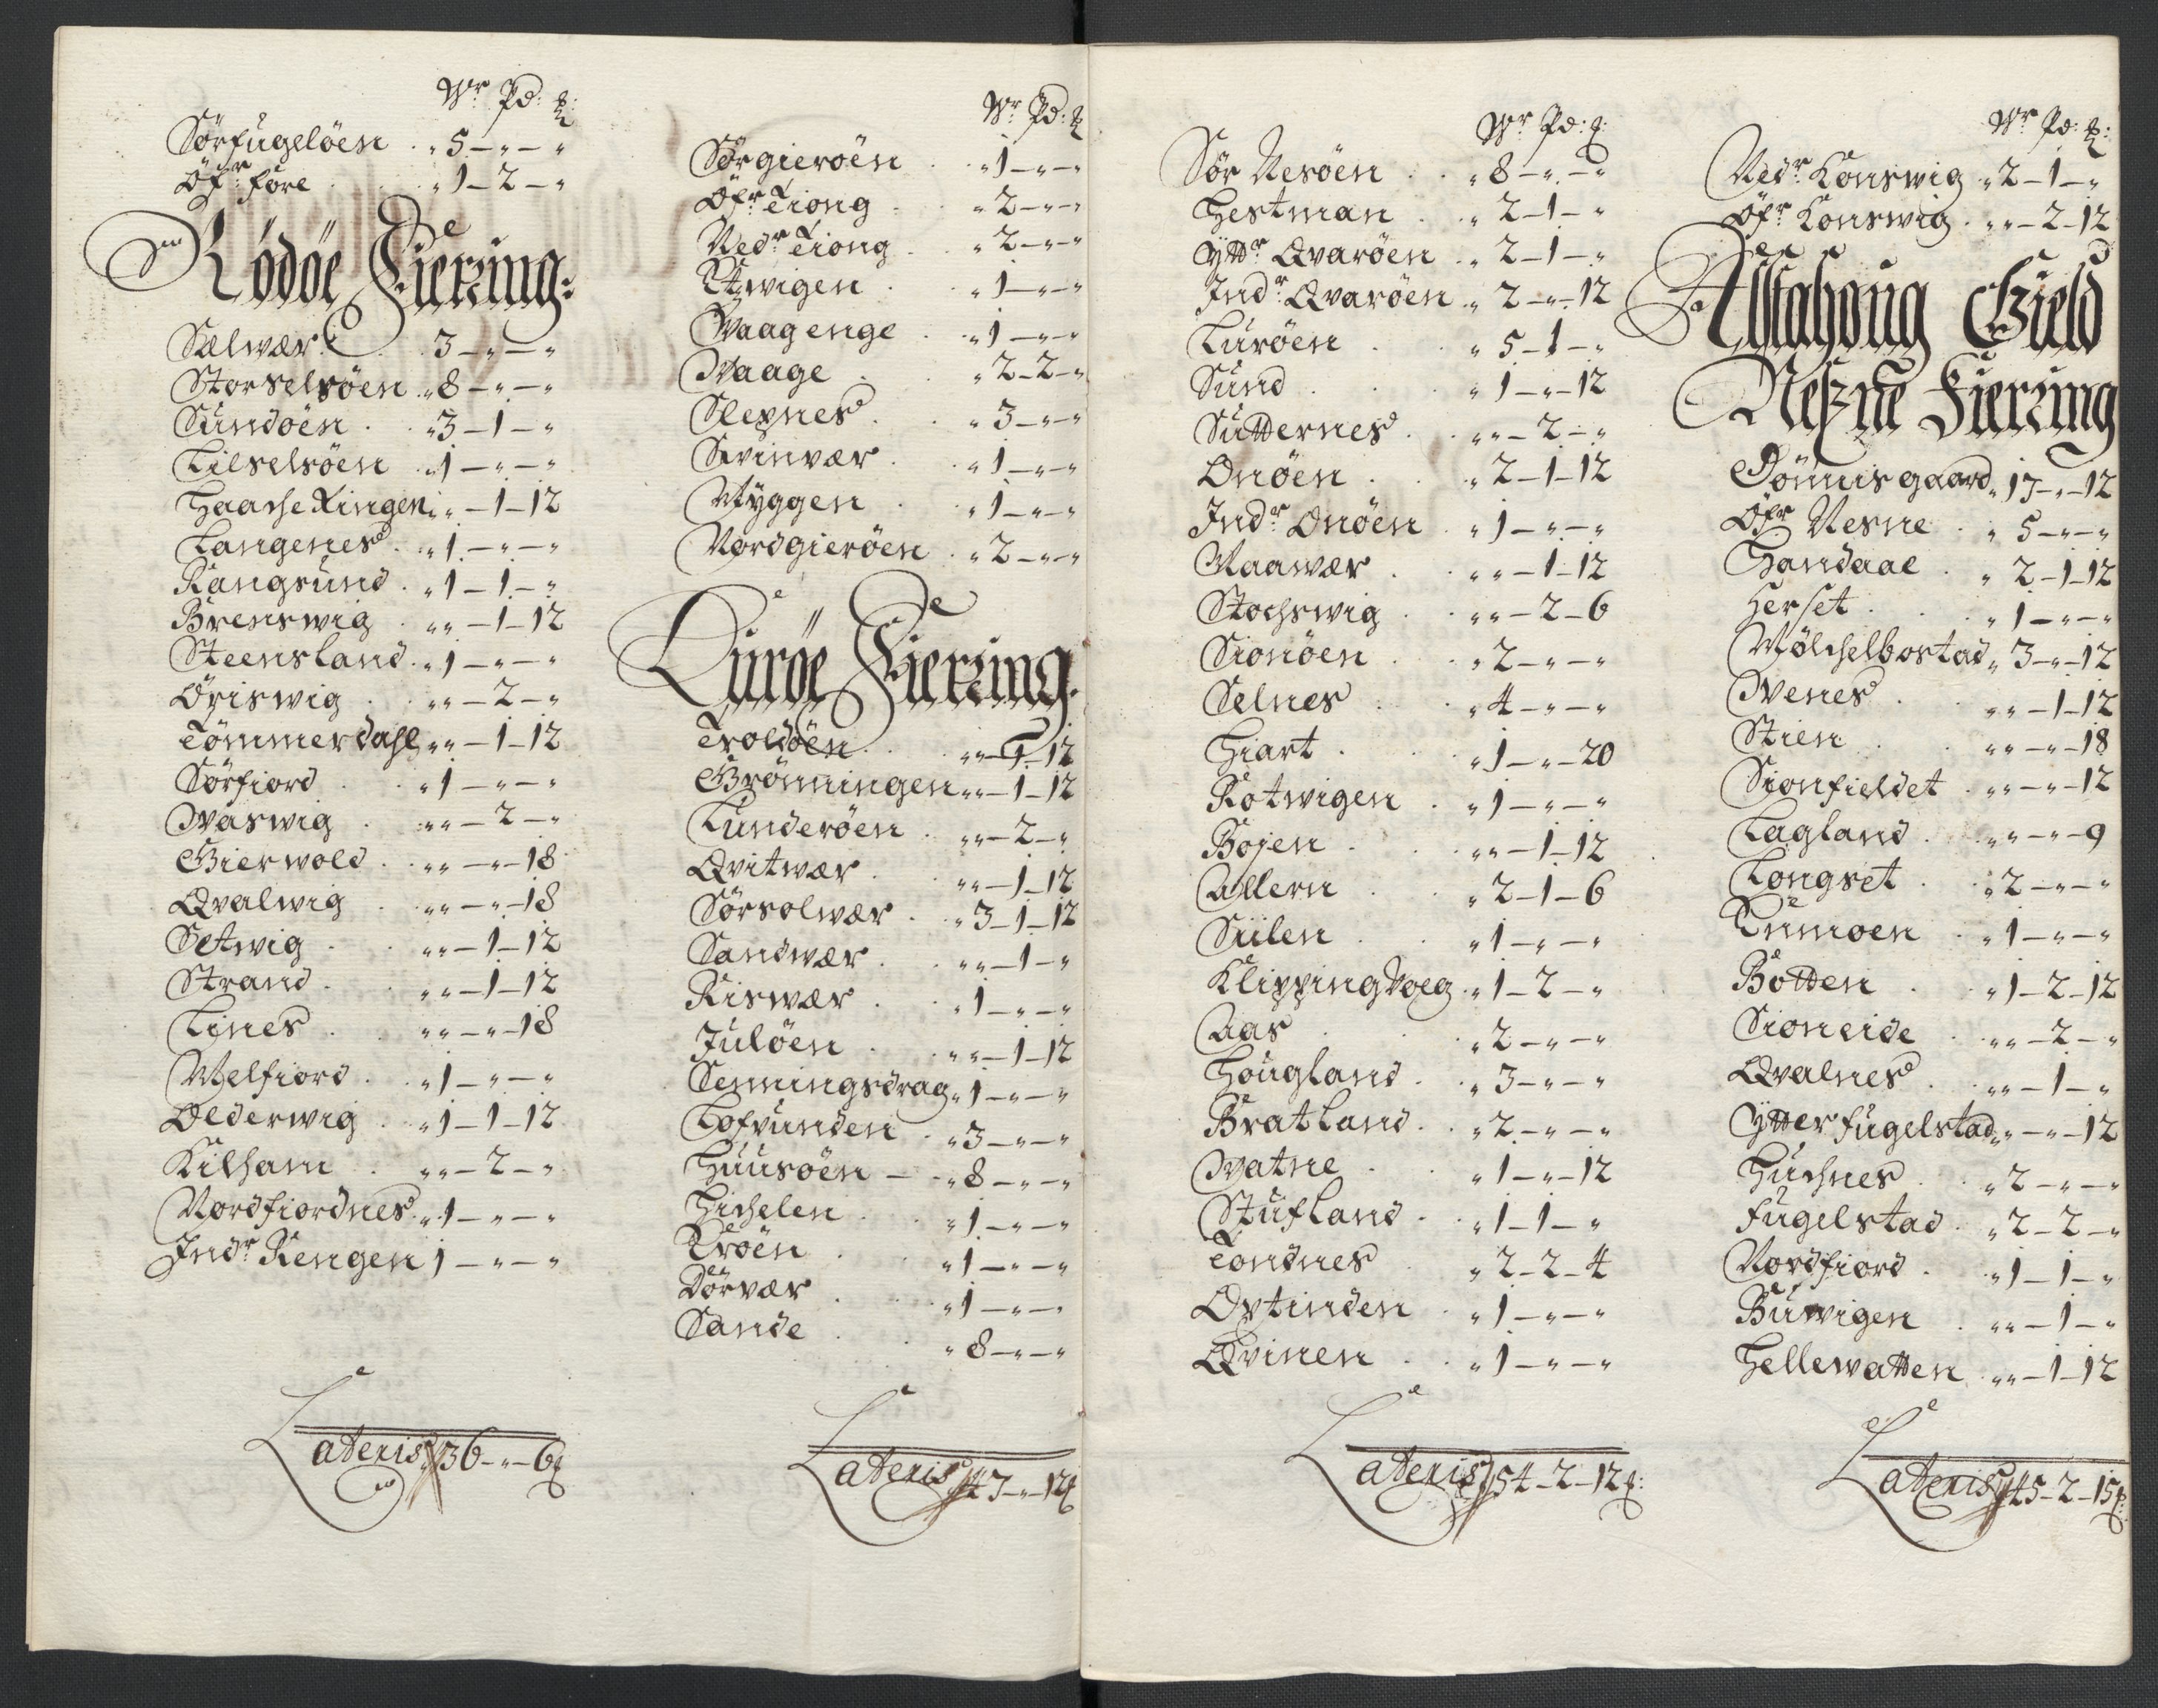 Wr Pd: ℔:
Sörfugelöen . „ 5 – „ – „
Öfr före . „ 1 – 2 – „
Rödöe Fierring:
Sælwær . 3 – „ – „
Storselsöen „ 8 – „ – „
Sundöen . „ 3 – 1 – „
Lilselsöen „ 1 – „ – „
Haache Ringen „ „ – 1 – 12
Langenes . „ 1 – „ – „
Rangsund . „ 1 – 1 – „
Brenswig . „ „ – 1 – 12
Steensland . „ 1 – „ – „
Öriswig . „ „ – 2 – „
Tömmerdahl „ „ – 1 – 12
Sörfiord . „ 1 – „ – „
Waswig . „ „ – 2 – „
Gierwold . „ „ – „ – 18
Qvalwig . „ „ – „ – 18
Setwig . „ „ – 1 – 12
Strand . „ „ – 1 – 12
Lines . „ „ – „ – 18
Melfiord . „ 1 – „ – „
Olderwig . „ 1 – 1 – 12
Kilham . „ „ – 2 – „
Nordfiordnes . „ 1 – „ – „
Indr Rengen 1 – „ – „
Lateris 36 – „ – 6 ℔
Wr Pd: ℔
Sörgieröen . „ 1 – „ – „
Öfr Tiong . „ 2 – „ – „
Nedr Tiong . „ 2 – „ – „
Utwigen . „ 1 – „ – „
Waag enge . „ 1 – „ – „
Waage . „ 2 – 2 – „
Slepnes . „ 3 – „ – „
Svinvær . „ 1 – „ – „
Myggen . „ 1 – „ – „
Nordgieröen . „ 2 – „ – „
Luröe Fierring.
Troldöen . „ „ – 1 – 12
Grönningen „ „ – 1 – 12
Lunderöen . „ „ – 2 – „
Qvitvær . „ „ – 1 – 12
Sörsolvær . „ 3 – 1 – 12
Sandwær . „ „ – 1 – „
Riswær . „ 1 – „ – „
Julöen . „ „ – 1 – 12
Senningsdrag „ 1 – „ – „
Lofvunden . „ 3 – „ – „
Huusöen – „ 8 – „ – „
Hichelen . „ 1 – „ – „
Tröen . „ 1 – „ – „
Dörvær . „ 1 – „ – „
Sande . „ 8 – „ – „
Lateris 47 – „ – 12 ℔
Wr Pd: ℔:
Sör Nesöen . „ 8 – „ – „
Hestman . „ 2 – 1 – „
Yttr Qvaröen . „ 2 – 1 – „
Indr Qvaröen „ 2 – „ – 12
Luröen . „ 5 – 1 – „
Sund . „ 1 – „ – 12
Sutternes . „ „ – 2 – „
Onöen . „ 2 – 1 – 12
Indr Onöen „ 1 – „ – „
Maawær . „ „ – 1 – 12
Stochswig . „ „ – 2 – 6
Sionöen . „ 2 – „ – „
Selnes . „ 4 – „ – „
Hiart . „ 1 – „ – 20
Rotwigen . „ 1 – „ – „
Bojen . „ „ – 1 – 12
Allern . „ 2 – 1 – 6
Siilen . „ 1 – „ – „
Klippingvoeg . „ 1 – 2 – „
Aas . „ 2 – „ – „
Hougland . „ 3 – „ – „
Bratland . „ 2 – „ – „
Watne . „ 1 – „ – 12
Stufland . „ 1 – 1 – „
Tondnes . „ 2 – 2 – 4
Oxtinden . „ 1 – „ – „
Qvinen . „ 1 – „ – „
Lateris 54 – 2 – 12 ℔:
Wr Pd: ℔:
Nedr Konswig „ 2 – 1 – „
Öfr Konswig „ „ – 2 – 12
Alstahoug Gield
Neszne Fierring
Dönnis gaard „ 17 – „ – 12
Öfr Nesne . „ 5 – „ – „
Handaae . „ 2 – 1 – 12
Herset . „ 1 – „ – „
Mölchelbostad „ 3 – „ – 12
Wenes . „ „ – 1 – 12
Stien . „ „ – „ – 18
Sionfieldet . „ „ – „ – 12
Lagland . „ „ – „ – 9
Longset . „ 2 – „ – „
Tunmoen . „ 1 – „ – „
Botten . „ 1 – 2 – 12
Sioneide . „ „ – 2 – „
Qvalnes . „ „ – 1 – „
Ytter fugelstad „ „ – „ – 12
Huchnes . „ 2 – „ – „
fugelstad . „ 2 – 2 – „
Nordfiord . „ 1 – 1 – „
Buwigen . „ „ – 1 – „
Hellewatten . „ „ – 1 – 12
Lateris 45 – 2 – 15 ℔: